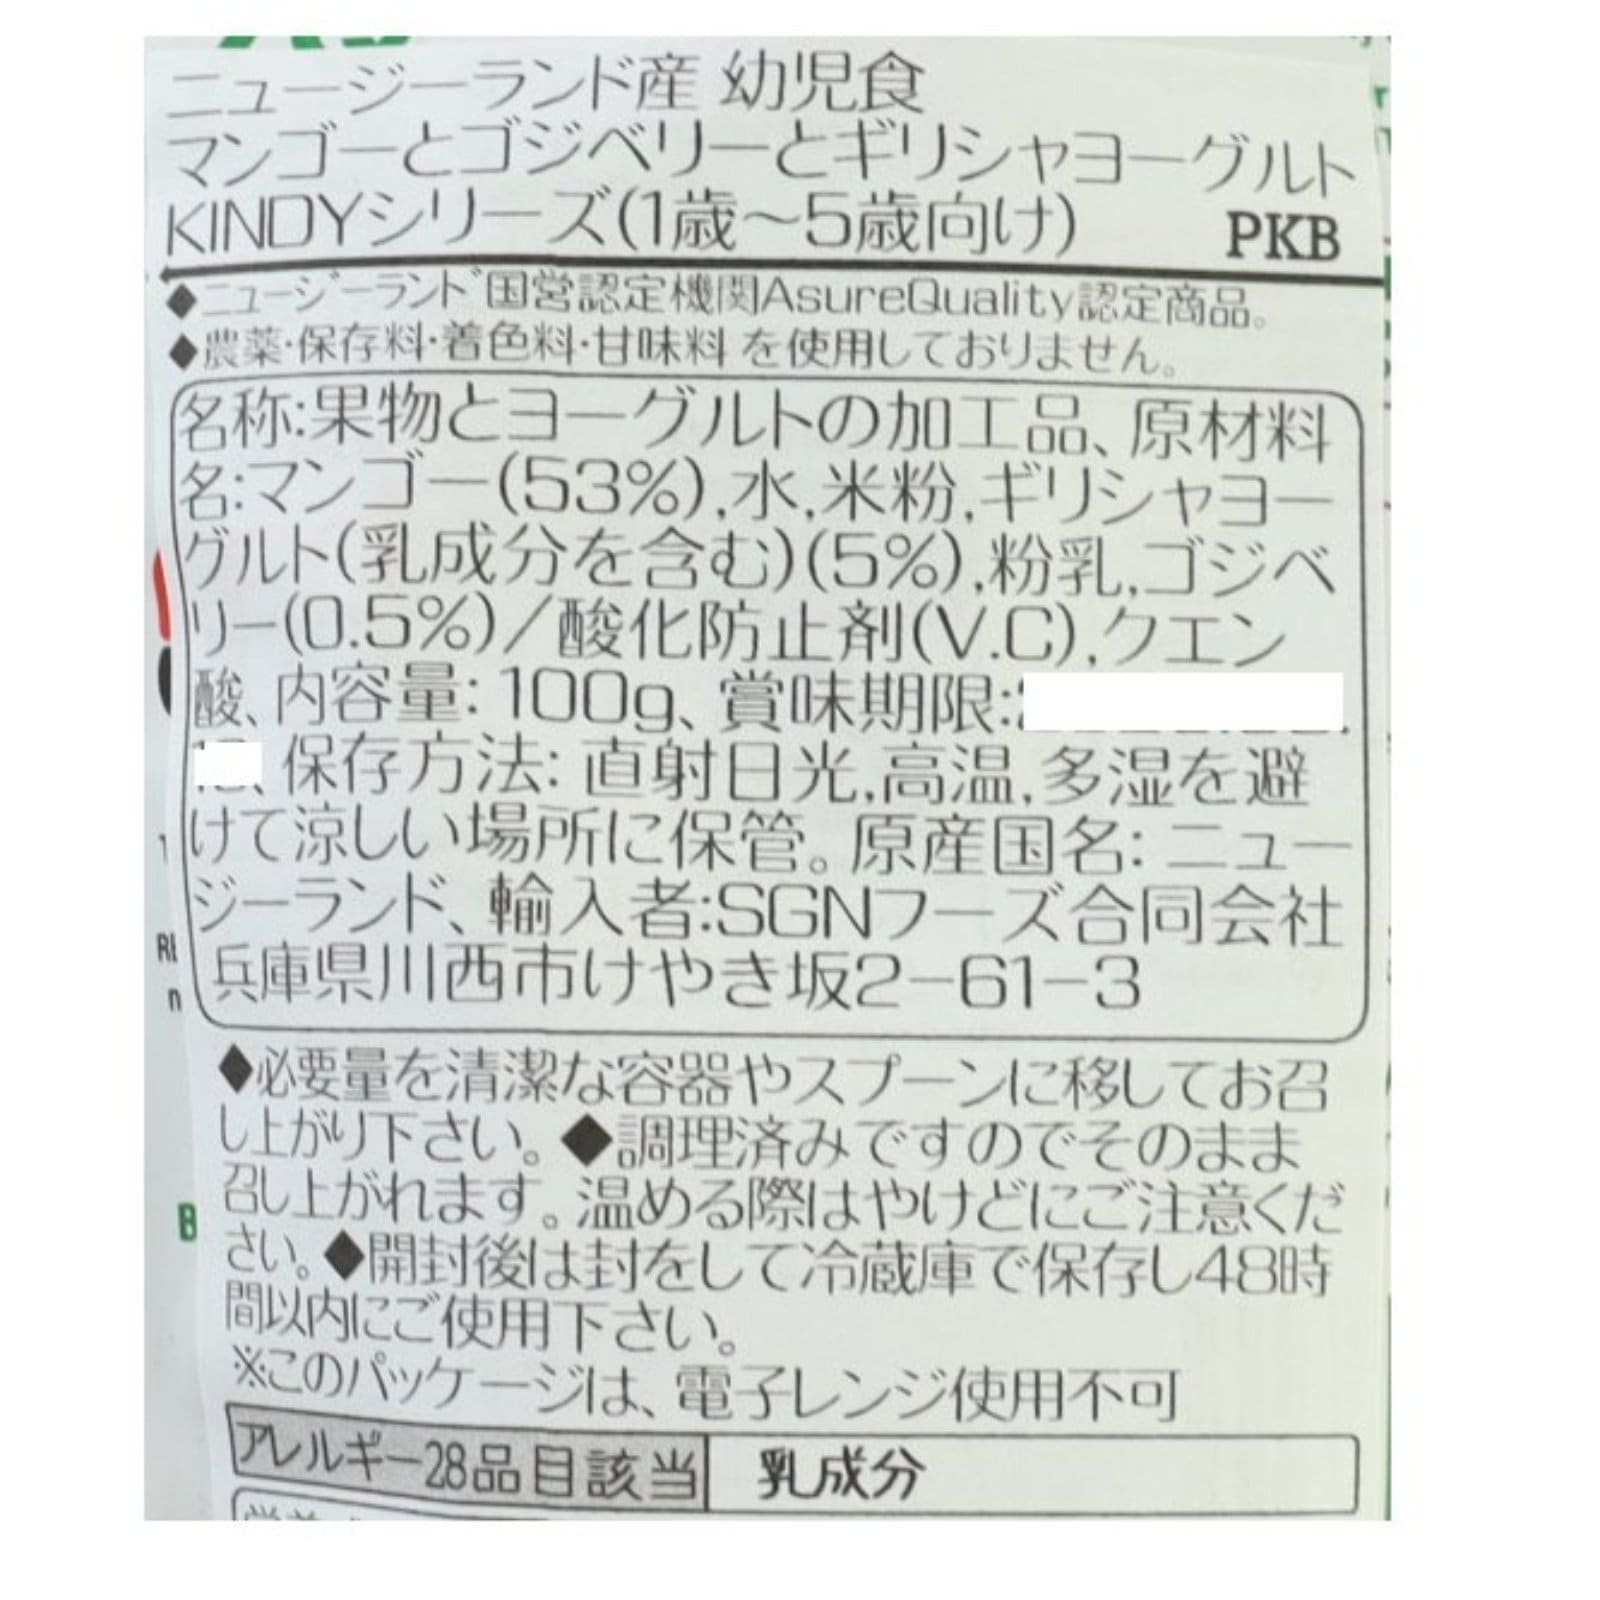 ニュージーランド産 幼児食
マンゴーとゴジベリーとギリシャヨーグルト
KINDYシリーズ(1歳〜5歳向け) PKB
◆ニュージーランド国営認定機関AsureQuality認定商品。
◆農薬・保存料・着色料・甘味料 を使用しておりません。
名称:果物とヨーグルトの加工品、原材料
名:マンゴー(53%),水,米粉,ギリシャヨー
グルト(乳成分を含む)(5%),粉乳,ゴジベ
リー(0.5%)/酸化防止剤(V.C),クエン
酸、内容量:100g、賞味期限:
、保存方法: 直射日光,高温,多湿を避
けて涼しい場所に保管。原産国名: ニュー
ジーランド、輸入者:SGNフーズ合同会社
兵庫県川西市けやき坂2-61-3
◆必要量を清潔な容器やスプーンに移してお召
し上がり下さい。◆調理済みですのでそのまま
召し上がれます。温める際はやけどにご注意くだ
さい。◆開封後は封をして冷蔵庫で保存し48時
間以内にご使用下さい。
※このパッケージは、電子レンジ使用不可
アレルギー28品目該当 乳成分